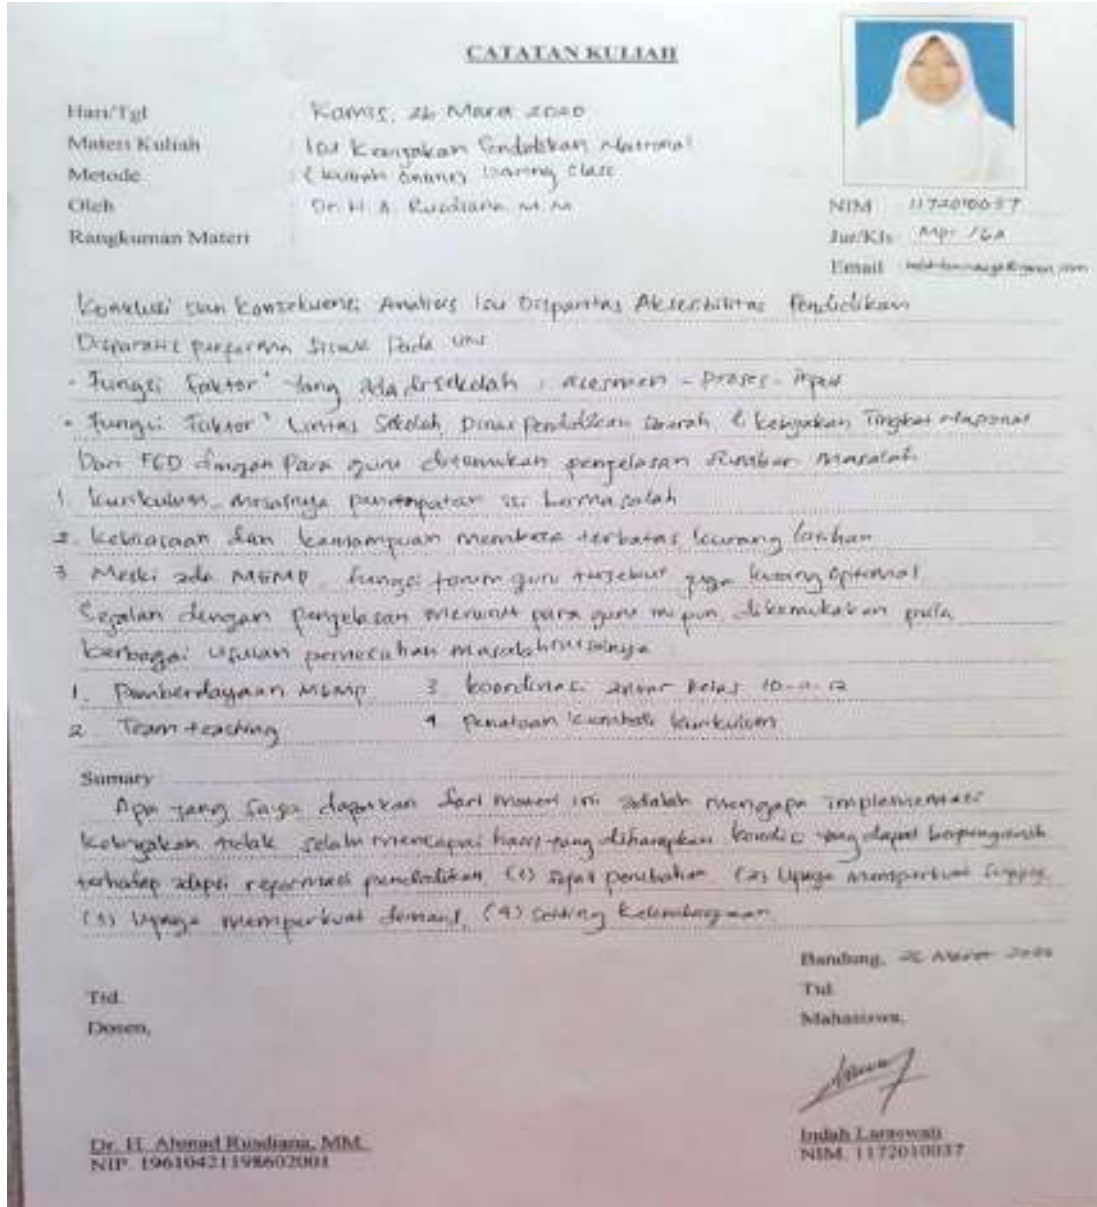 CATATAN KULIAH
Hari/Tgl : Kamis, 26 Maret 2020
Materi Kuliah : Isu Kebijakan Pendidikan Nasional
Metode : (kuliah Online) Daring Class
Oleh : Dr. H. A. Rusdiana, M.M
Rangkuman Materi :
NIM : 1172010037
Jur/Kls : MPI /6A
Email :
Konklusi dan Konsekuensi Analisis Isu Disparitas Aksesbilitas Pendidikan
Disparatis performa siswa Pada UNS
- Fungsi faktor² yang ada disekolah : asesmen - Proses - Input
- Fungsi Faktor² Lintas Sekolah, Dinas Pendidikan Daerah, & kebijakan Tingkat Nasional
Dari FGD dengan Para guru ditemukan penjelasan Sumber masalah
1. kurikulum, misalnya penempatan isi bermasalah
2. kebiasaan dan kemampuan membaca terbatas, kurang latihan
3. Meski ada MGMP, fungsi forum guru tersebut juga kurang optimal
Sejalan dengan penjelasan menurut para guru itupun, dikemukakan pula
berbagai usulan pemecahan masalah misalnya
1. Pemberdayaan MGMP 3. koordinasi antar kelas 10-11-12
2. Team teaching 4. Penataan kembali kurikulum
Sumary
Apa yang saya dapatkan dari materi ini adalah mengapa implementasi
kebijakan tidak selalu mencapai hasil yang diharapkan kondisi yang dapat berpengaruh
terhadap adopsi reformasi pendidikan, (1) sifat perubahan (2) Upaya memperkuat Supply
(3) Upaya memperkuat demand, (4) setting Kelembagaan
Bandung, 26 Maret 2020
Ttd.
Ttd.
Dosen,
Mahasiswa,
Dr. H. Ahmad Rusdiana, MM.
NIP. 19610421198602001
Indah Laraswati
NIM. 1172010037